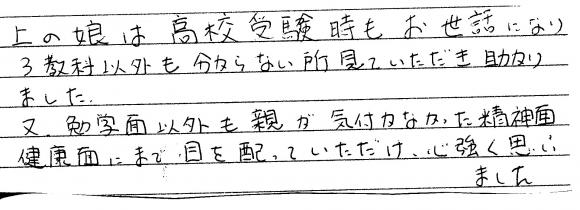 上の娘は高校受験時もお世話になり
3教科以外も分からない所見ていただき助かり
ました。
又、勉学面以外も親が気付かなかった精神面
健康面にまで目を配っていただけ、心強く思い
ました